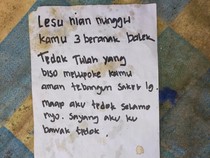 Lesu nian nunggu
kamu 3 beranak balek
Tedok Tulah yang
biso melupoke kamu
aman tebangun saket lg.
maap aku tedok selamo
nyo. Sayang aku ku
bawak tidok.